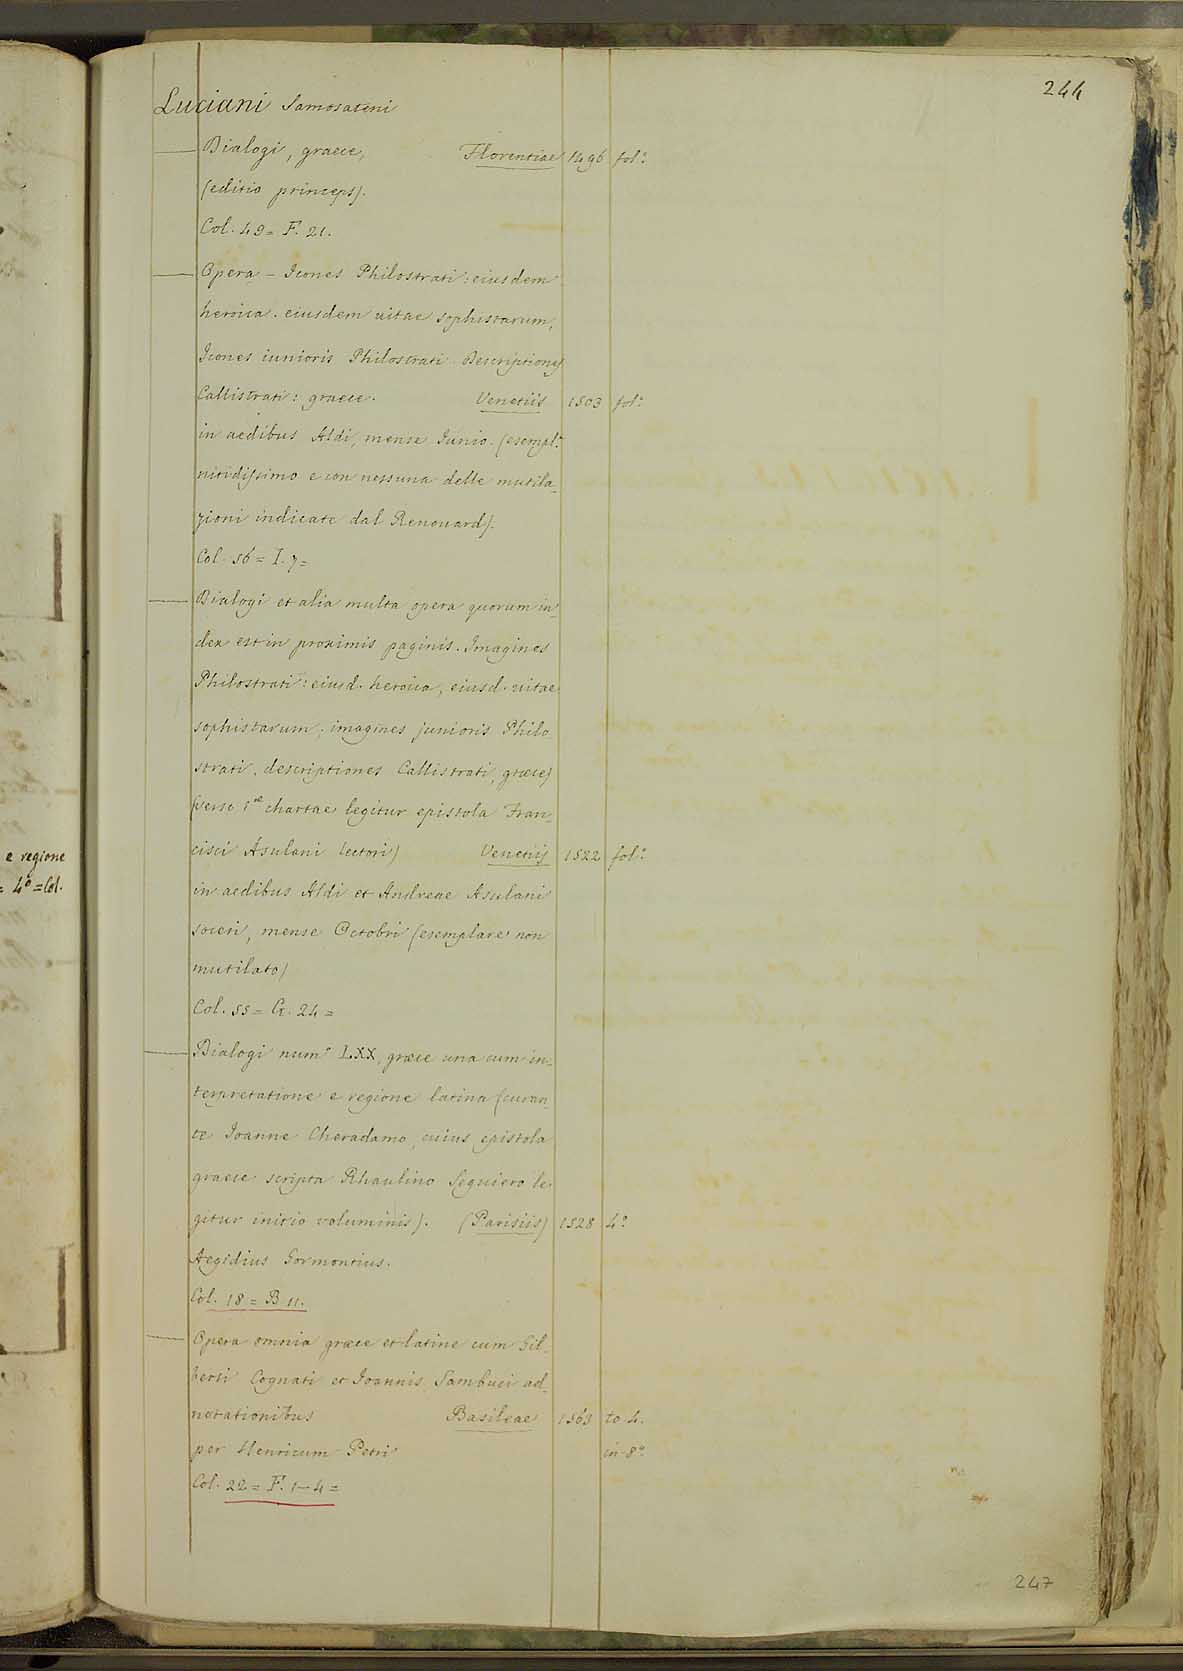 244
Luciani Samosateni
Dialogi, graece, Florentiae 1496 fol.º
(editio princeps).
Col. 49 = F. 21.
Opera – Icones Philostrati: eiusdem
heroica. eiusdem vitae sophistarum,
Icones iunioris Philostrati. Descriptiones
Callistrati: graece. Venetiis 1503 fol.º
in aedibus Aldi, mense Iunio. (esempl.e
nitidissimo e con nessuna delle mutila-
zioni indicate dal Renouard).
Col. 56 = I. 7 =
Dialogi et alia multa opera quorum in-
dex est in proximis paginis. Imagines
Philostrati: eiusd. heroica, eiusd. vitae
sophistarum; imagines junioris Philo-
strati. descriptiones Callistrati, graece)
(verso 1ae chartae legitur epistola Fran-
cisci Asulani lectori) Venetiis 1522 fol.º
in aedibus Aldi et Andreae Asulani
soceri, mense Octobri (esemplare non
mutilato)
Col. 55 = G. 24 =
Dialogi num.º LXX, graece una cum in-
terpretatione e regione latina (curan-
te Joanne Cheradamo, cuius epistola
graece scripta Rhaulino Seguiero le-
gitur initio voluminis). (Parisiis) 1528 4.º
Aegidius Gormontius.
Col. 18 = B 11.
Opera omnia graece et latine cum Gil-
berti Cognati et Joannis Sambuci ad-
notationibus Basileae 1563 to. 4.
per Henricum Petri in-8.º
Col. 22 = F. 1–4 =
247
e regione
= 4º = Col.